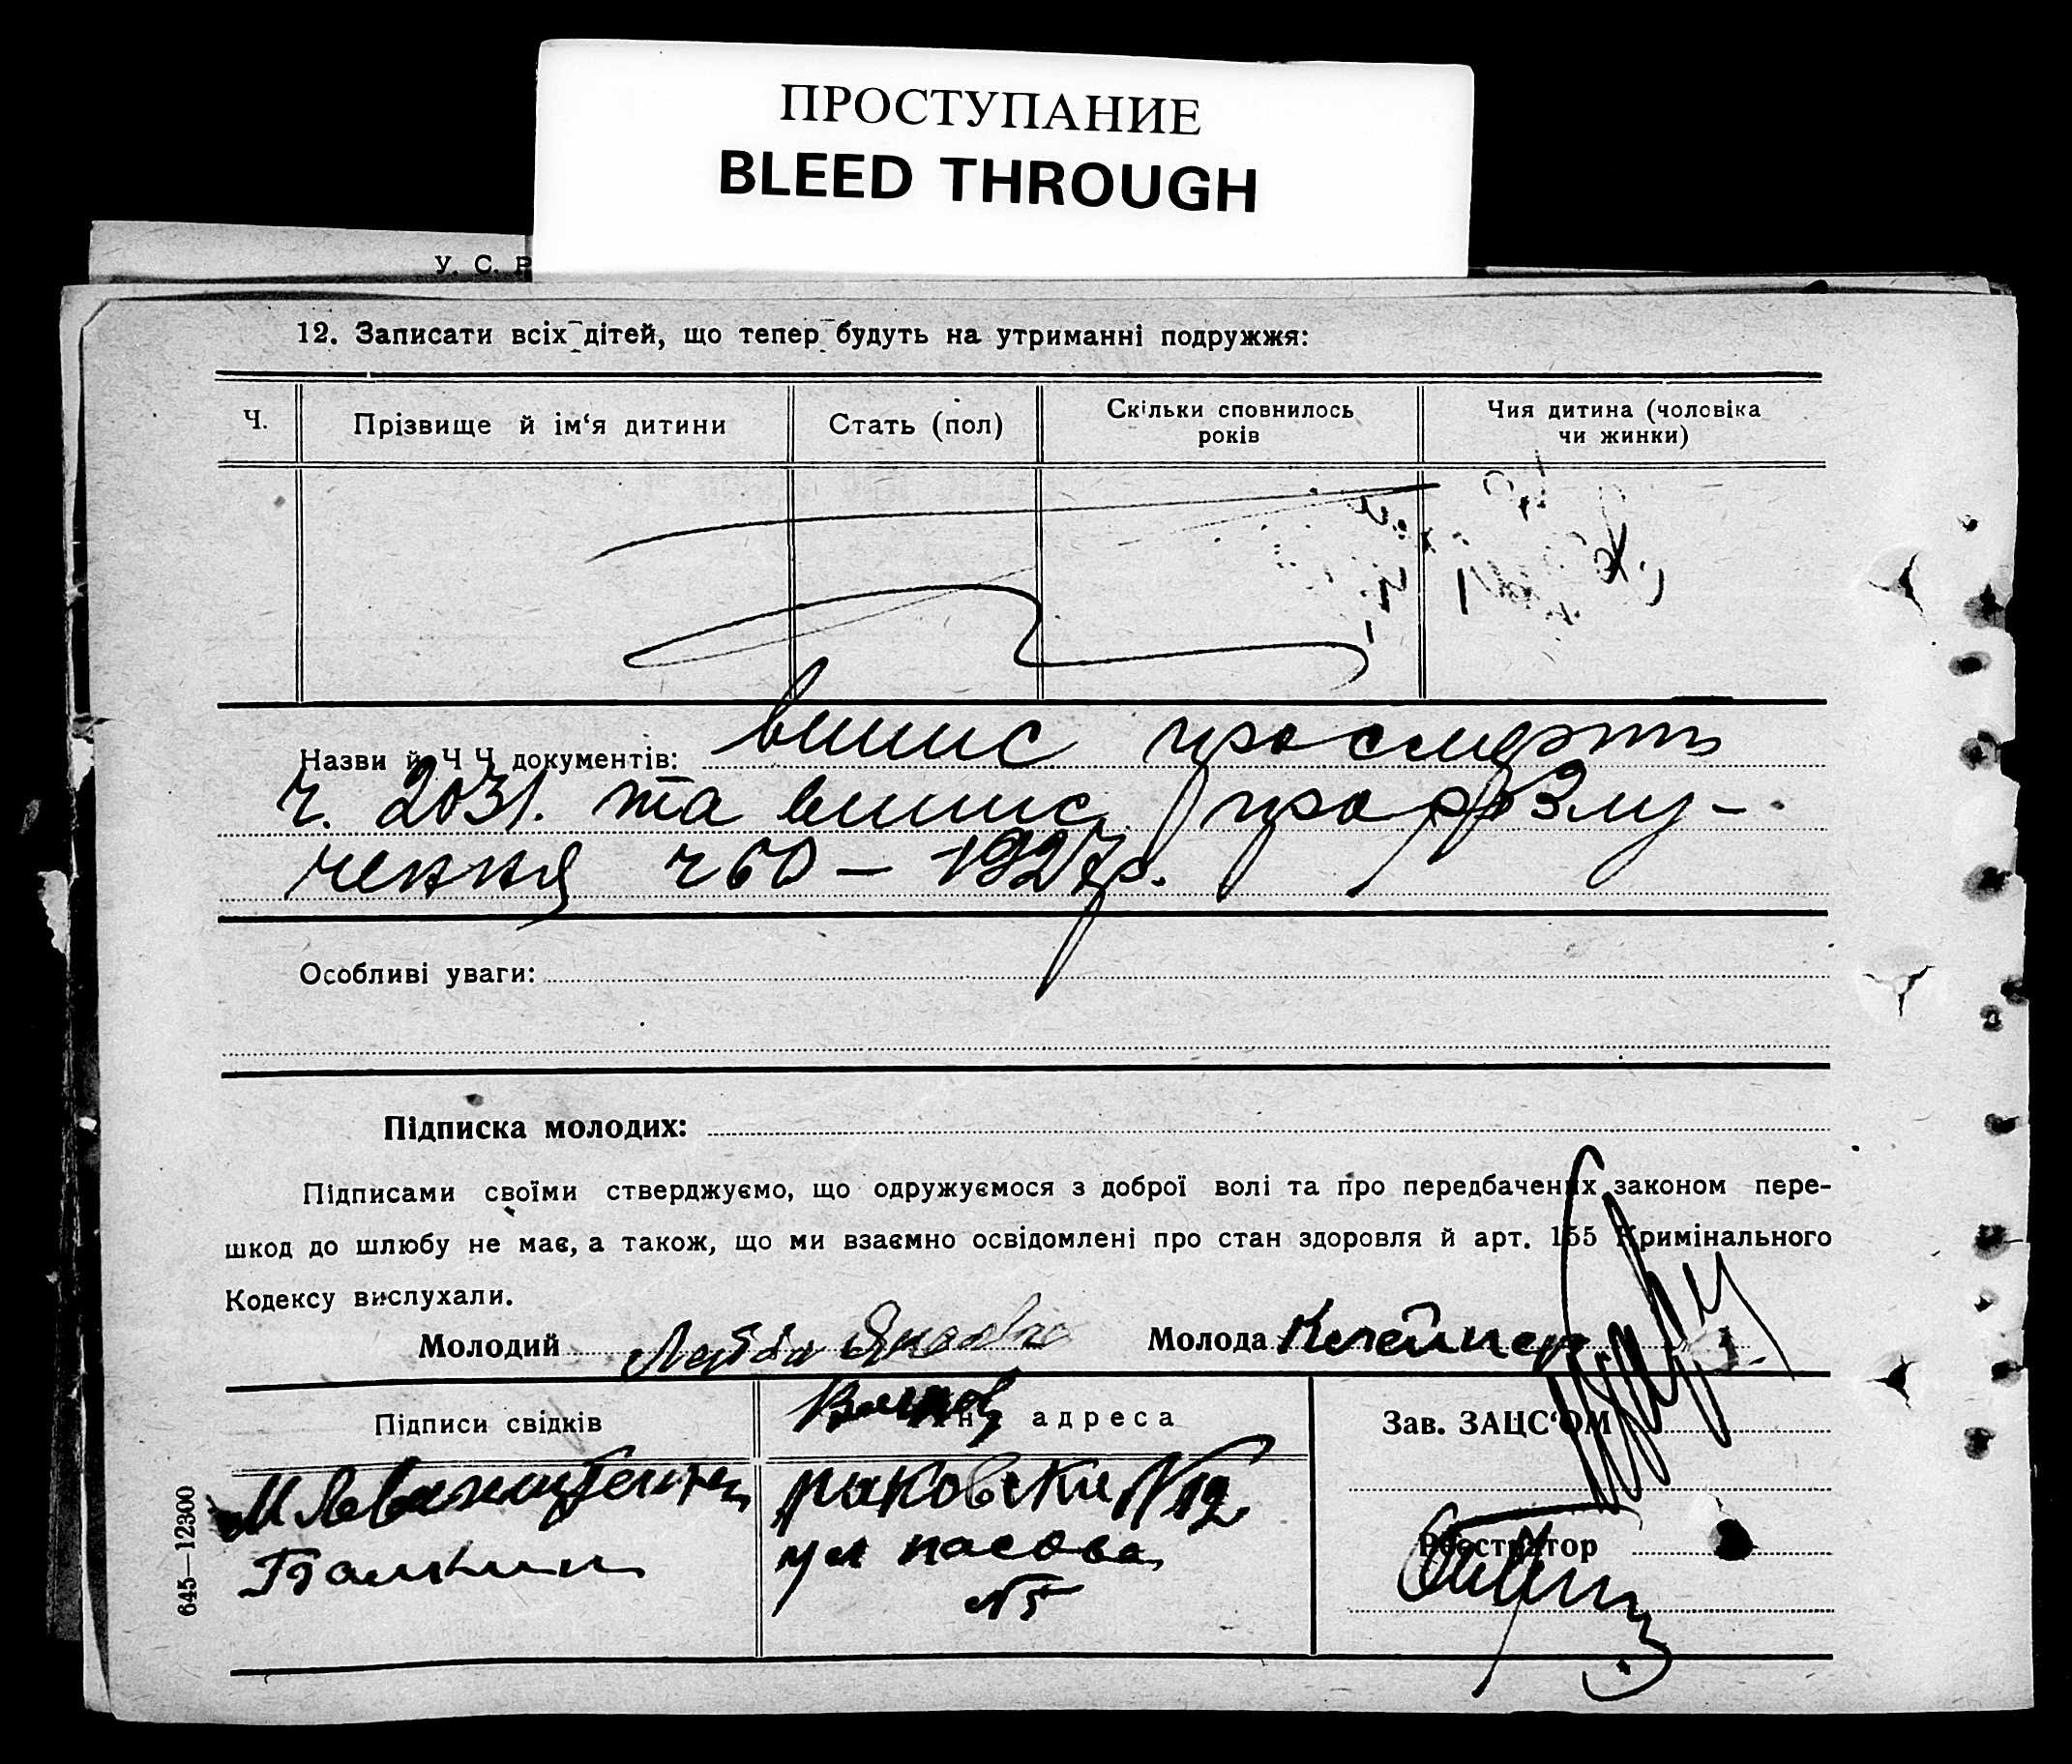 ПРОСТУПАНИЕ
BLEED THROUGH
У. С. Р
12. Записати всіх дітей, що тепер будуть на утриманні подружжя:
Ч.
Прізвище й ім'я дитини
Стать (пол)
Скільки сповнилось
років
Чия дитина (чоловіка
чи жинки)
Назви й Ч Ч документів: випис про смерть
ч. 2031. та випис про розлу-
чення ч 60 – 1927р.
Особливі уваги:
Підписка молодих:
Підписами своїми стверджуємо, що одружуємося з доброї волі та про передбачених законом пере-
шкод до шлюбу не має, а також, що ми взаємно освідомлені про стан здоровля й арт. 155 Кримінального
Кодексу вислухали.
Молодий Лейба
Молода Клейнер
Підписи свідків
адреса
Зав. ЗАЦС'ОМ
раковски N12
ул пасова
N5
Реєстратор
645—12300